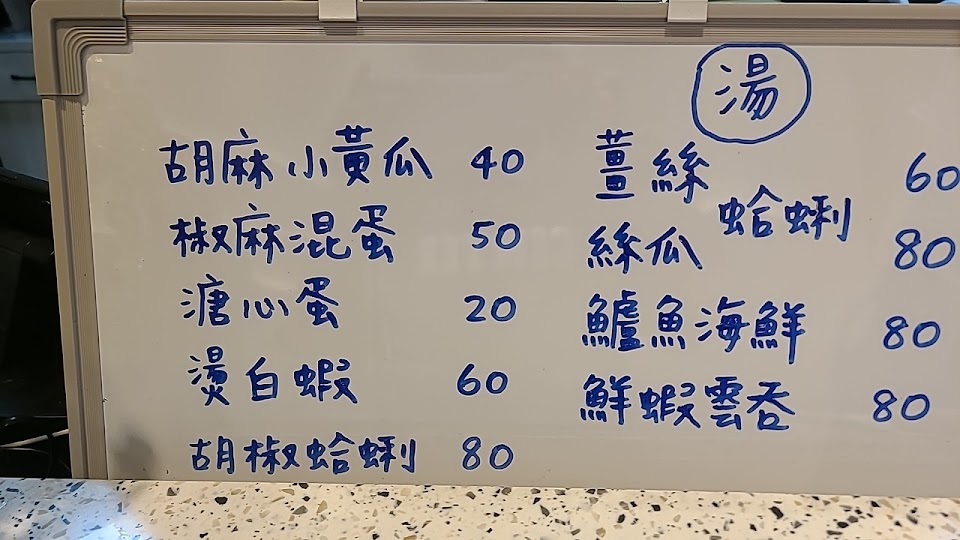 胡麻小黃瓜 40
椒麻混蛋 50
溏心蛋 20
燙白蝦 60
胡椒蛤蜊 80
湯
薑絲 60
蛤蜊
絲瓜 80
鱸魚海鮮 80
鮮蝦雲吞 80